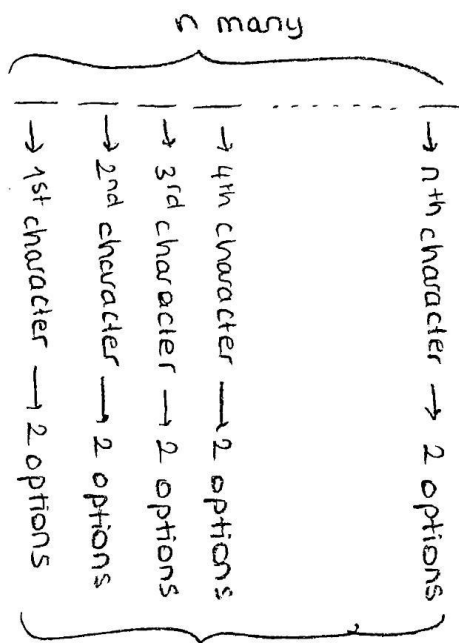 n many
→ 1st character → 2 options
→ 2nd character → 2 options
→ 3rd character → 2 options
→ 4th character → 2 options
..........
→ nth character → 2 options